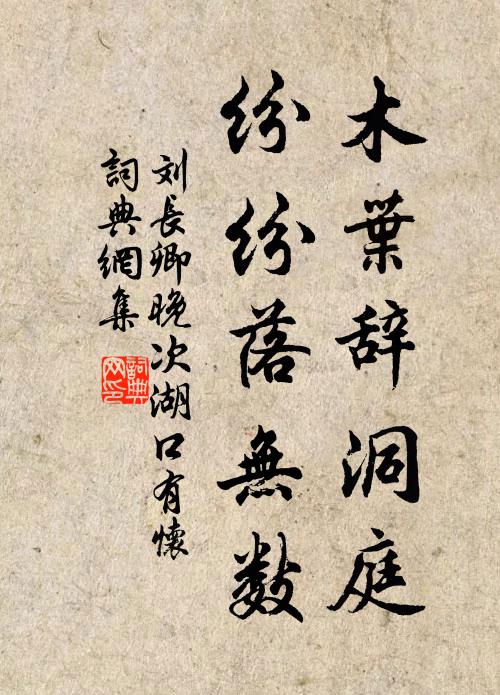 木葉辞洞庭
紛紛落無数
刘長卿晚次湖口有懷
詞典網集
詞典网印